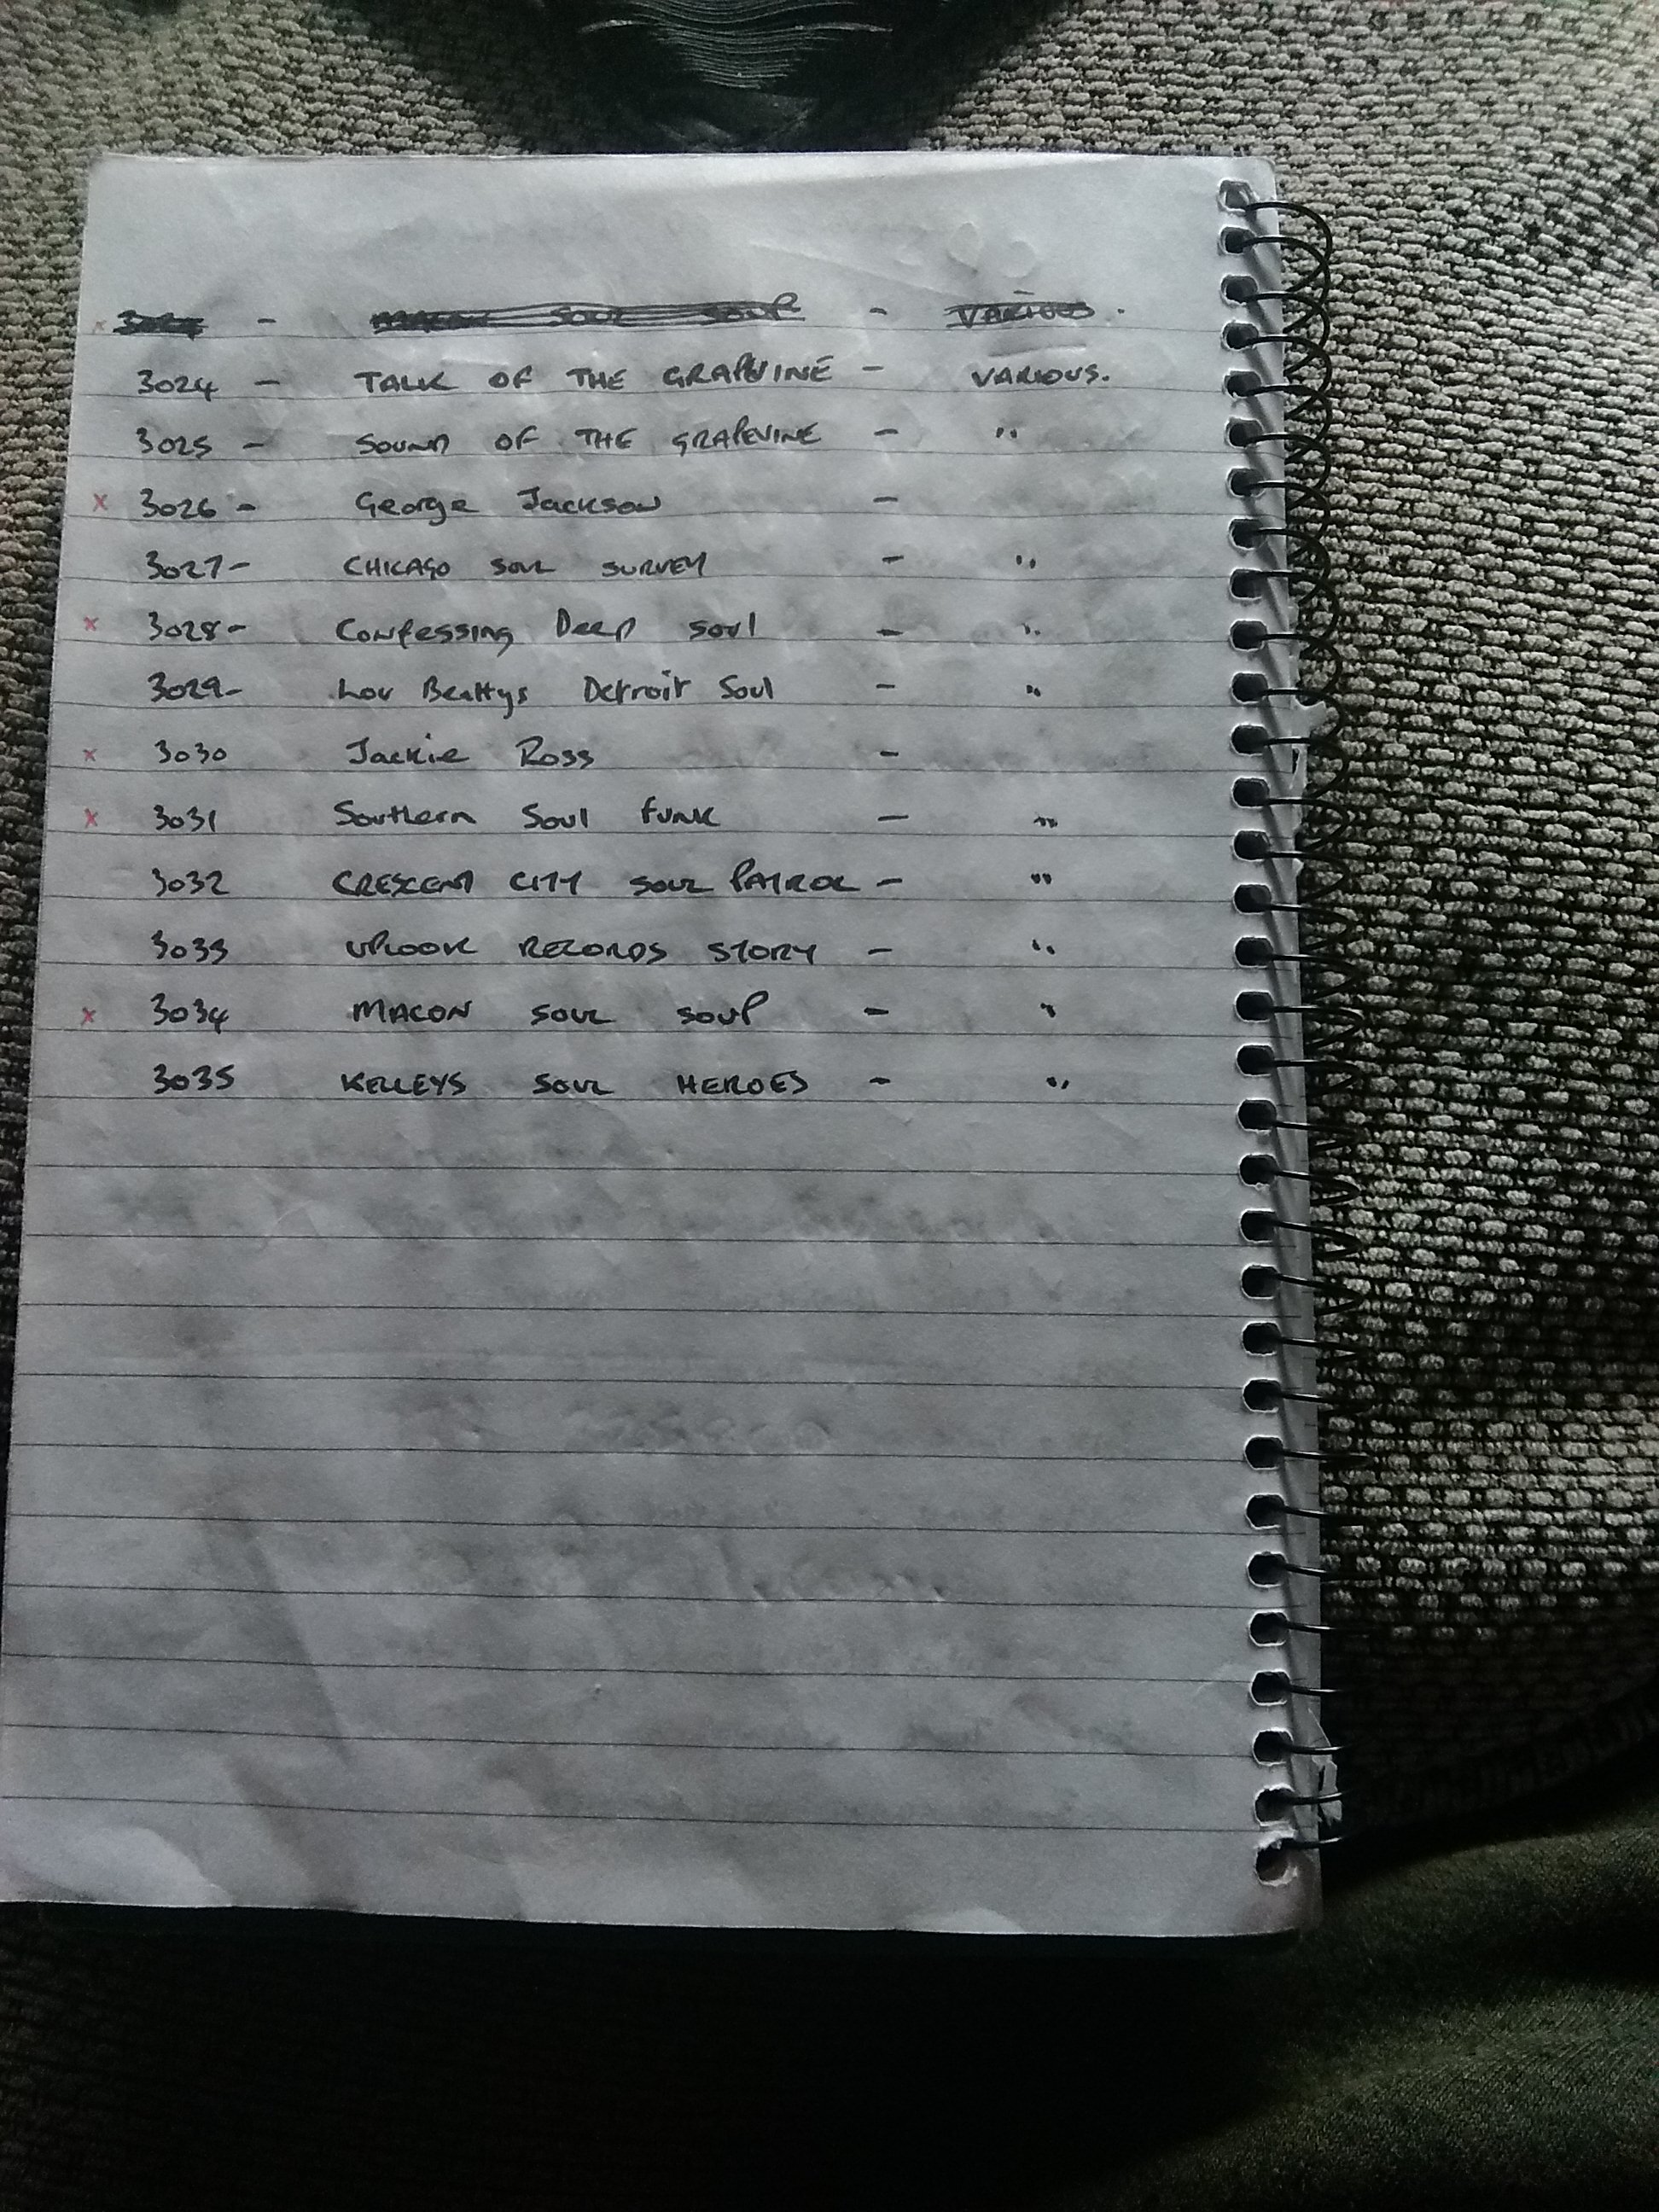 x - SOUL SOUP - VARIOUS.
3024 - TALK OF THE GRAPEVINE - VARIOUS.
3025 - SOUND OF THE GRAPEVINE - "
x 3026 - George Jackson -
3027 - CHICAGO SOUL SURVEY - "
x 3028 - Confessing Deep soul - "
3029 - Lou Beattys Detroit Soul - "
x 3030 Jackie Ross -
x 3031 Southern Soul funk - "
3032 CRESCENT CITY SOUL PATROL - "
3033 UPLOOK RECORDS STORY - "
x 3034 MACON SOUL SOUP - "
3035 KELLEYS SOUL HEROES - "